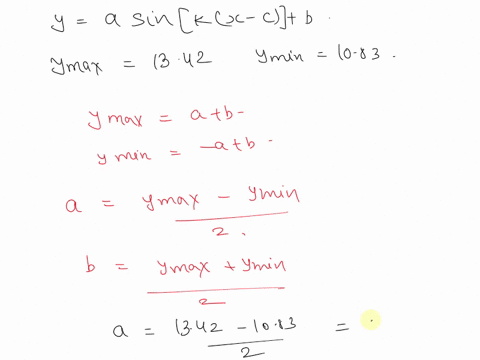 y = a sin[k(x-c)]+b.
ymax = 13.42 ymin = 10.83.
ymax = a+b-
ymin = -a+b-
a = ymax - ymin / 2.
b = ymax + ymin / 2
a = 13.42 - 10.83 / 2 =